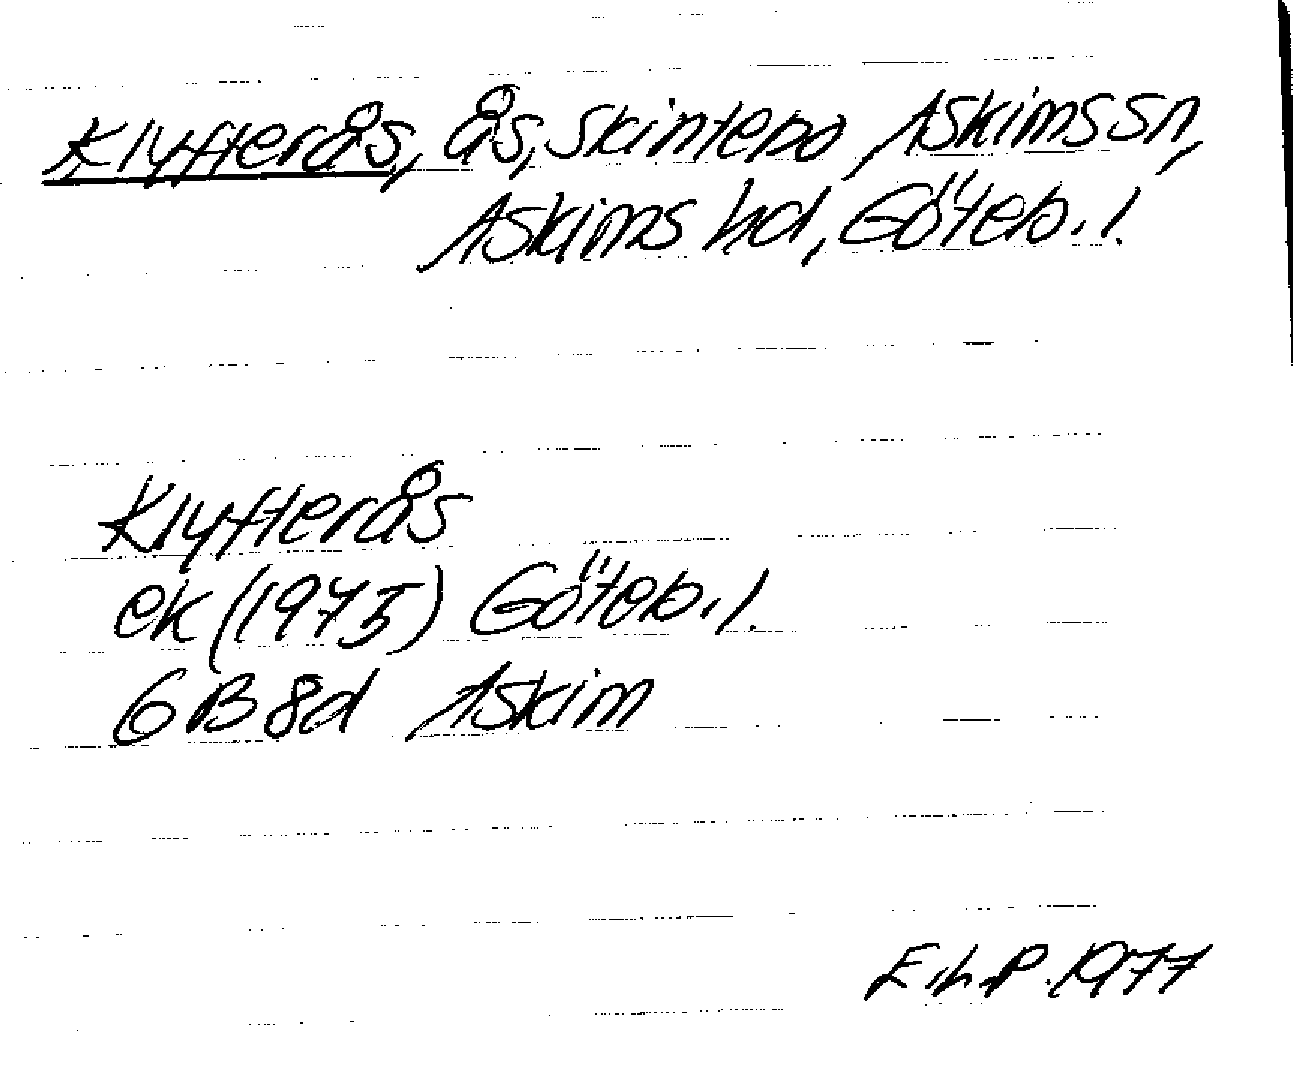 Klyfterås, ås, Skintebo, Askims sn,
Askims hd, Göteb. l.
Klyfterås
ek (1975) Göteb. l.
6B8d Askim
E.L.P. 1977